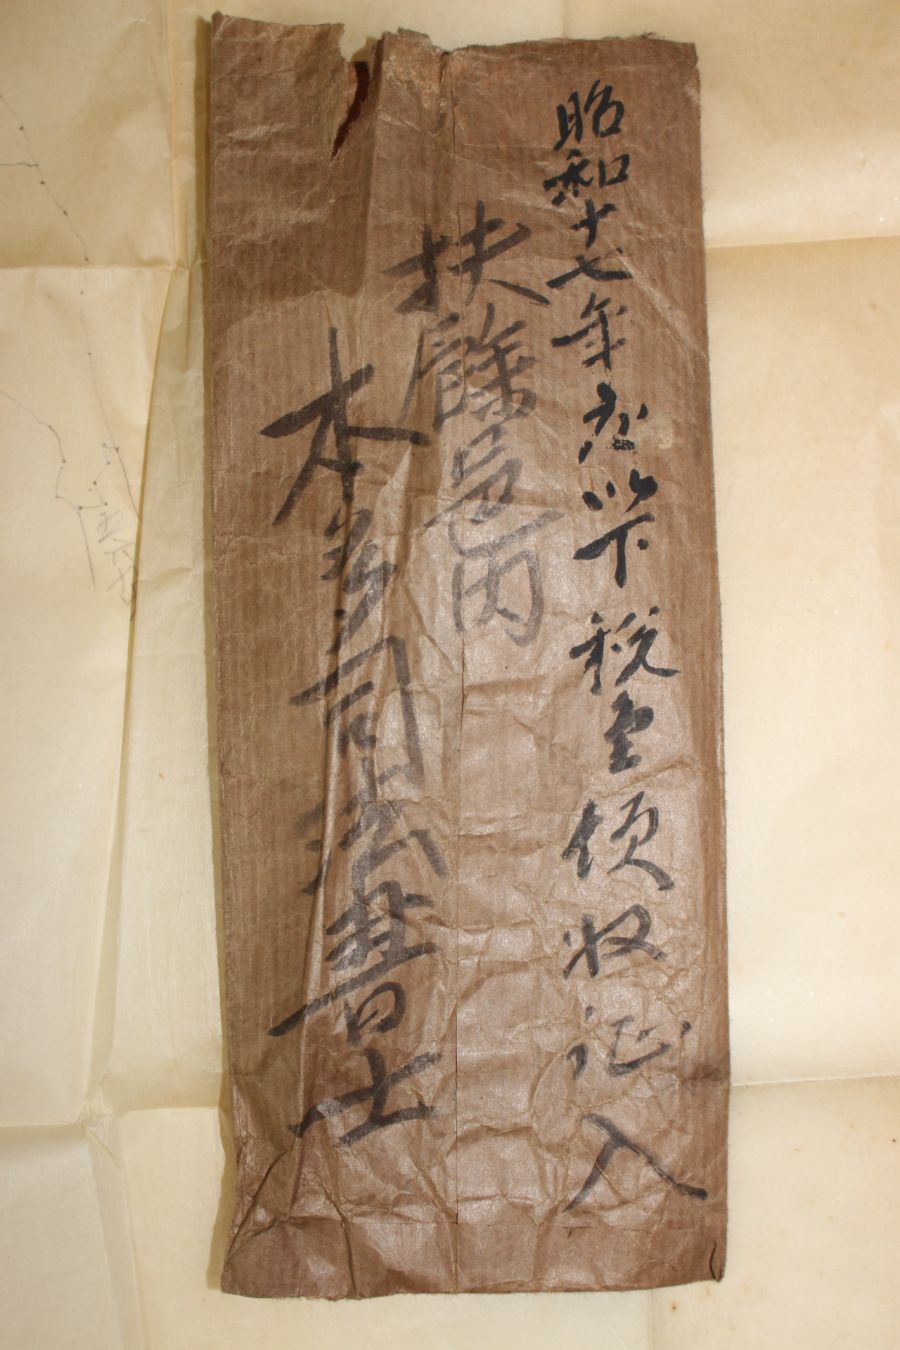 昭和十七年度以下税金領收証入
扶餘邑内
本多司法書士